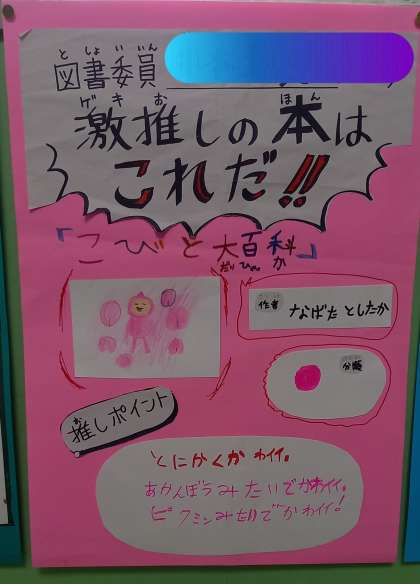 としょいいん
図書委員
ゲキお ほん
激推しの本は
これだ!!
「こびと大百科」
だいひゃっか
作者 なばた としたか
分類
お
推しポイント
とにかくかわイイ。
あかんぼうみたいでかわイイ。
ピクミンみたいでかわイイ!